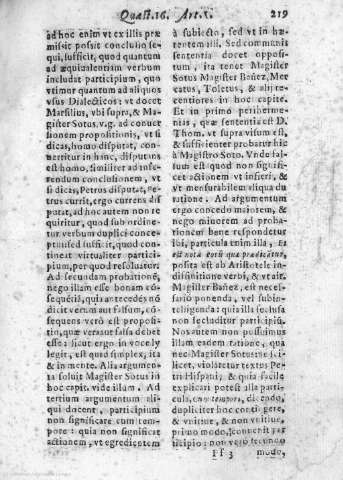 Quæst. 16. Art. 1. 219
ad hoc enim vt ex illis præ
missis possit conclusio se-
qui, sufficit, quod quantum
ad æquiualentiam verbum
includat participium, quo
vtimur quantum ad aliquos
vsus Dialecticos: vt docet
Marsilius, vbi supra, & Ma-
gister Sotus. v. g. ad conuer
sionem propositionis, vt si
dicas, homo disputat, con-
uertitur in hanc, disputans
est homo, similiter ad infe-
rendum conclusionem, vt
si dicas, Petrus disputat, Pe-
trus currit, ergo currens dis
putat, ad hoc autem non re
quiritur, quod sub ordine-
tur verbum duplici conce-
ptui sed sufficit, quod con-
tineat virtualiter partici-
pium, per quod resoluitur.
Ad secundam probationem
nego illam esse bonam cō-
sequētiā, quia antecedēs nō
dicit verum aut falsum, cō-
sequens verò est proposi-
tio, quæ verum aut falsa debet
esse: sicut ergo in voce ly
legit, est quid simplex, ita
& in mente. Alia argumen-
ta soluit Magister Sotus in
hoc capit. vide illam. Ad
tertium argumentum ali-
qui docent, participium
non significare cum tem-
pore: quia non significat
actionem, vt egredientem
à subiecto, sed vt in hæ-
rentem illi. Sed communis
sententia docet opposi-
tum, ita tenet Magister
Sotus Magister Bañez, Mer
catus, Toletus, & alij re-
centiores in hoc capite.
Et in primo perihermenias, quæ sententia est D.
Thom. vt supra visum est,
& sufficienter probatur hic
à Magistro Soto. Vnde fal-
sum est quod non signifi-
cet actionem vt in fieri, &
vt mensurabilem aliqua du
ratione. Ad argumentum
ergo concedo maiorem, &
nego minorem ad proba-
tionem bene respondetur
ibi, particula enim illa, Et
est nota eorū quæ prædicātur,
posita est ab Aristotele in
diffinitione verbi, & vt ait
Magister Bañez, est neces-
sario ponenda, vel subin-
telligenda: quia illa seclusa
non secluditur participiū.
Nos autem non possumus
illam eadem ratione, qua
nec Magister Sotus
licet, violatur textus Pe-
tri Hispani, & quia facile
explicari potest alla parti-
cula, cum tempore, dicendo,
dupliciter hoc contingere,
& vniuit, & non vniuit,
primo modo, conuenit par
ticipio: non verò secundo
Ff 3 modo,